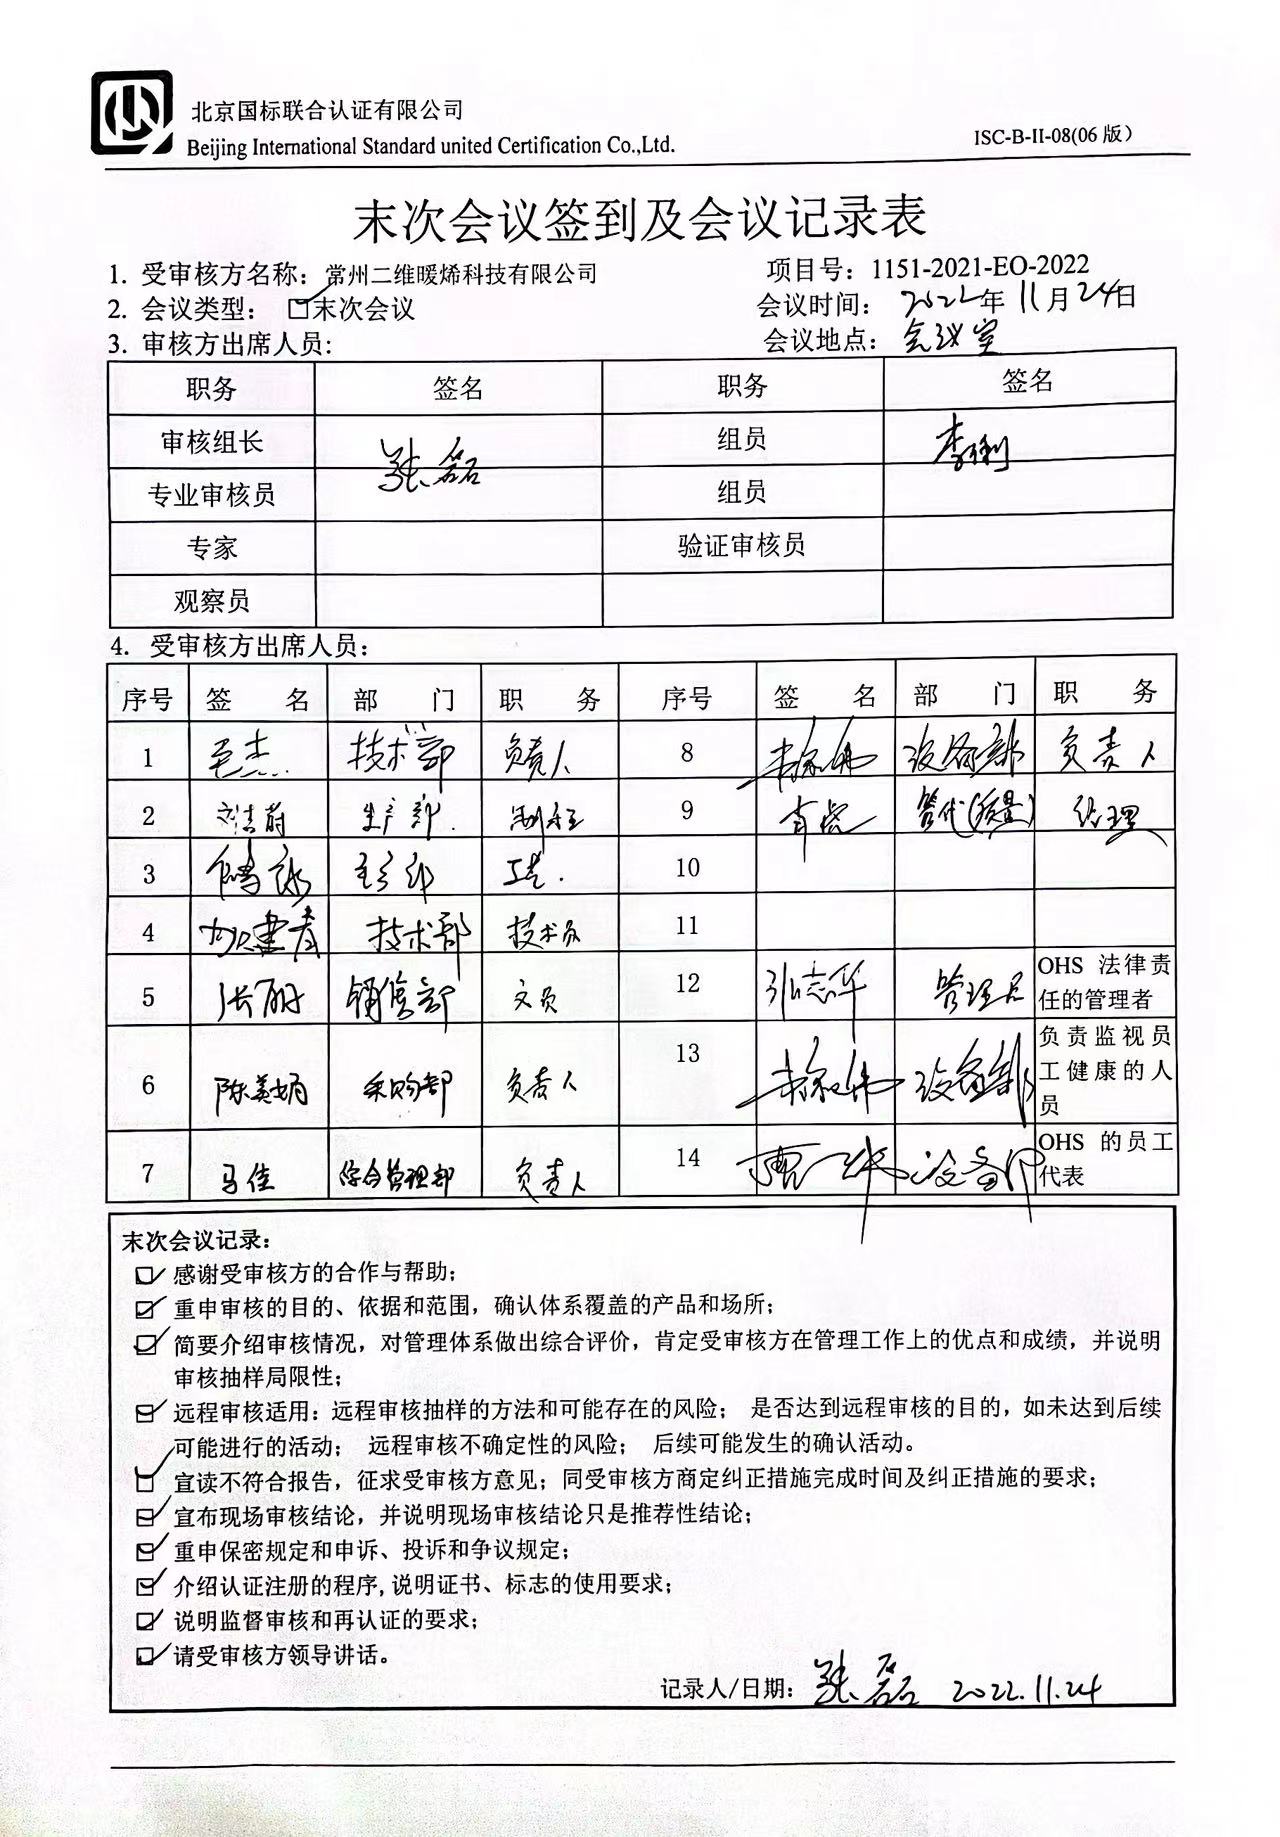 北京国标联合认证有限公司
Beijing International Standard united Certification Co.,Ltd.
ISC-B-II-08(06 版)
末次会议签到及会议记录表
1. 受审核方名称：常州二维暖烯科技有限公司 项目号：1151-2021-EO-2022
2. 会议类型：☑末次会议 会议时间：2022年11月24日
3. 审核方出席人员: 会议地点：会议室
职务 签名 职务 签名
审核组长 张磊 组员 李俐
专业审核员 组员
专家 验证审核员
观察员
4. 受审核方出席人员：
序号 签 名 部 门 职 务 序号 签 名 部 门 职 务
1 技术部 负责人 8 设备部 负责人
2 生产部 9 肖虎 管代(质量) 经理
3 工艺 10
4 技术部 技术员 11
5 张丽 销售部 文员 12 张志华 管理员 OHS 法律责任的管理者
6 陈美娟 采购部 负责人 13 设备部 负责监视员工健康的人员
7 马佳 综合管理部 负责人 14 设备部 OHS 的员工代表
末次会议记录：
☑ 感谢受审核方的合作与帮助；
☑ 重申审核的目的、依据和范围，确认体系覆盖的产品和场所；
☑ 简要介绍审核情况，对管理体系做出综合评价，肯定受审核方在管理工作上的优点和成绩，并说明
审核抽样局限性；
☑ 远程审核适用：远程审核抽样的方法和可能存在的风险； 是否达到远程审核的目的，如未达到后续
可能进行的活动； 远程审核不确定性的风险； 后续可能发生的确认活动。
☑ 宣读不符合报告，征求受审核方意见；同受审核方商定纠正措施完成时间及纠正措施的要求；
☑ 宣布现场审核结论，并说明现场审核结论只是推荐性结论；
☑ 重申保密规定和申诉、投诉和争议规定；
☑ 介绍认证注册的程序,说明证书、标志的使用要求；
☑ 说明监督审核和再认证的要求；
☑ 请受审核方领导讲话。
记录人/日期：张磊 2022.11.24